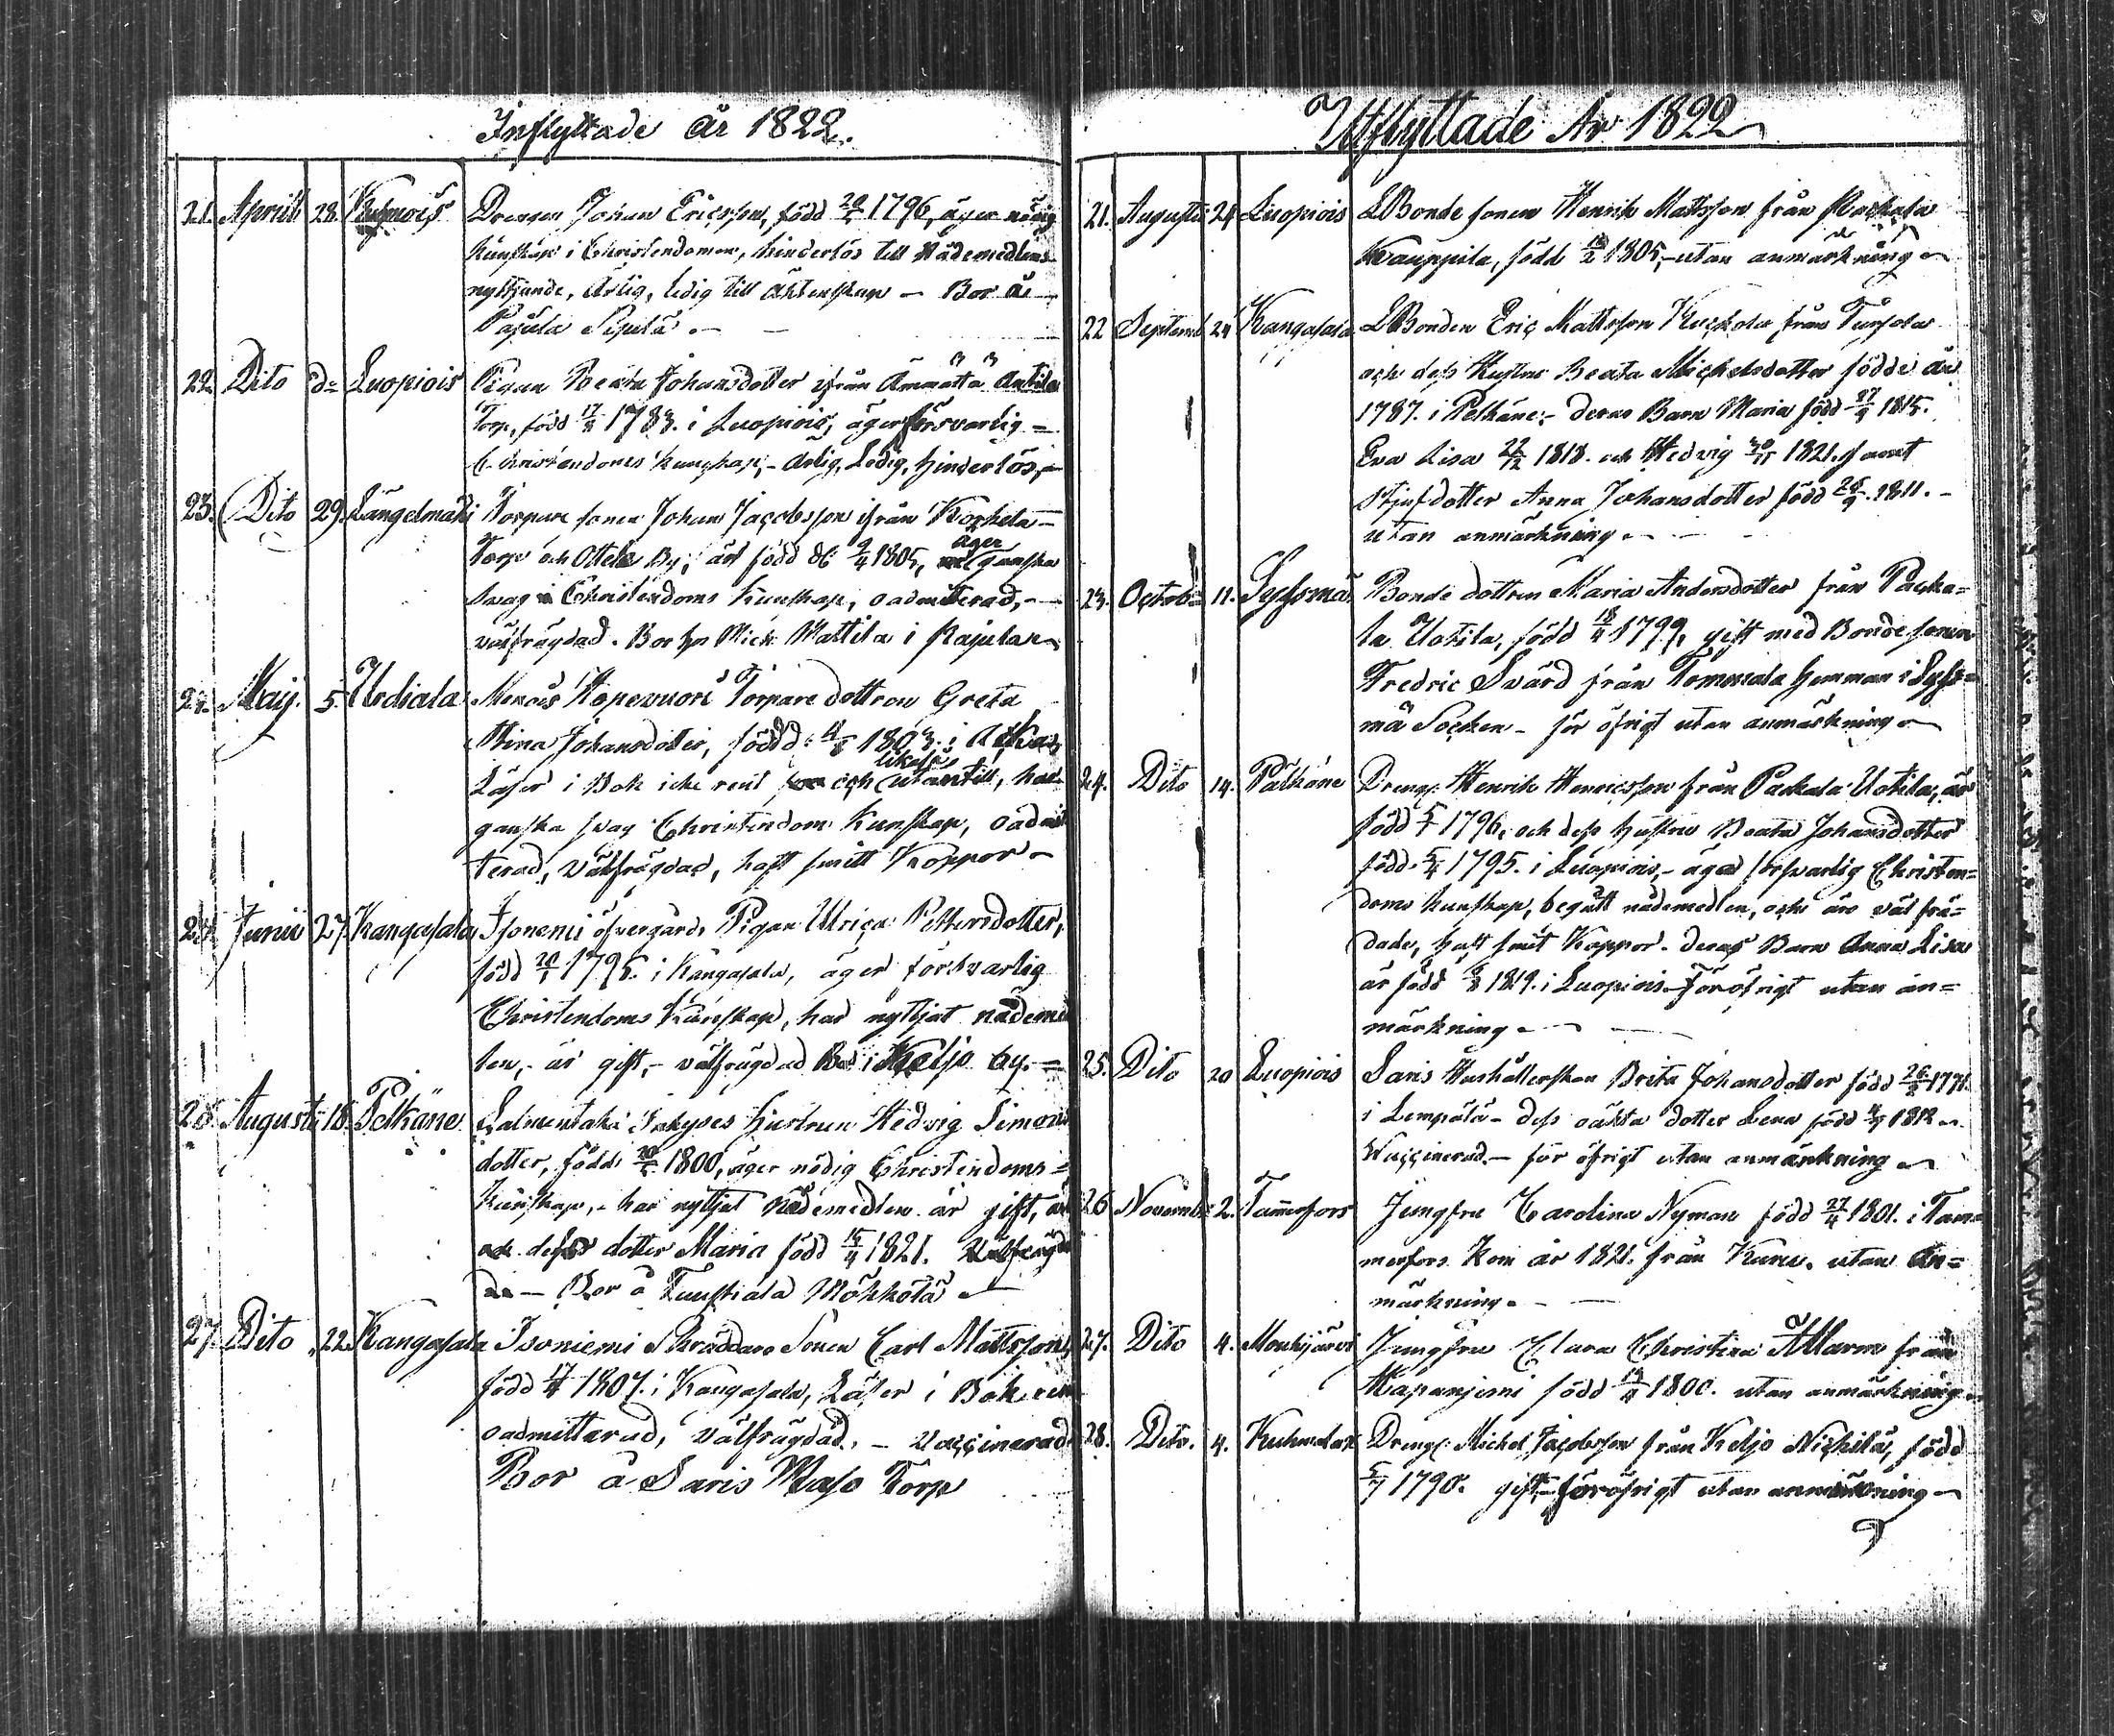 Inflyttade år 1822.
21. Aprill 28. Kuhmois Drengen Johan Ericsson, född 20/5 1796, äger nödig
kunskap i Christendomen, hinderlös till Nådemedlens
nyttjande, Ärlig, ledig till Äktenskap — Bor å
Pajula Sipilä —
22. Dito d:o Luopiois Pigan Beata Johansdotter ifrån Ämmättä Antila
Torp, född 17/8 1783. i Luopiois, äger försvarlig
Christendoms kunskap, - Ärlig, Ledig, hinderlös, -
23. Dito 29. Längelmäki Torpare sonen Johan Jacobsson ifrån Korhela
Torp och Ottela By, är född d: 9/4 1805, äger ganska
svag Christendoms kunskap, oadmitterad, -
välfrägdad. Bor hos Mich: Mattila i Pajula
24. Maij. 5. Urdiala Menois Hopevuori Torpare dottren Greta
Stina Johansdotter, född d: 4/8 1803. i Ackas
Läser i Bok icke rent och likaså utantill, har
ganska svag Christendoms Kunskap, oadmit
terad, välfrägdad, haft smitt Koppor —
25. Junii 27. Kangasala Isoniemi öfvergårds Pigan Ulrica Pettersdotter,
född 20/1 1795. i Kangasala, äger försvarlig
Christendoms Kunskap, har nyttjat nådemed
len, - är gift, - välfrägdad Bor i Keljo by. =
26. Augusti 18. Pelkäne Salmentaka Inhyses hustrun Hedvig Simons
dotter, född 20/5 1800, äger nödig Christendoms =
Kunskap, - har nyttjat nådemedlen är gift,
och dess dotter Maria född 15/4 1821. Välfrägda
de — Bor å Tuustiala Mökkölä —
27. Dito 22. Kangasala Isoniemi Skräddare Sonen Carl Mattsson,
född 17/4 1807. i Kangasala, Läser i Bok ren
oadmitterad, välfrägdad. — Vaccinerad.
Bor å Saris Maso Torp
Utflyttade År 1822
21. Augusti 24 Luopiois LBonde sonen Henrik Mattsson från Packala
Kauppila, född 12/2 1805, - utan anmärkning —
22 Septemb 24 Kangasala LBonden Eric Mattsson Kuckola från Tursola
och dess Hustru Beata Michelsdotter födde år
1787. i Pelkäne, - deras Barn Maria född 27/9 1815.
Eva Lisa 22/12 1818. och Hedvig 30/11 1821. samt
Stjufdotter Anna Johansdotter född 26/9 1811. -
utan anmärkning —
23. Octob: 11. Sysmä Bonde dottren Maria Andersdotter från Packa=
la Uotila, född 18/11 1799, gift med Bonde sonen
Fredric Svärd från Tommola hemman i Sys=
mä Socken - för öfrigt utan anmärkning —
24. Dito 14. Pälkäne Drengen Henrik Henricsson från Packala Uotila, är
född 5/1 1796, och dess hustru Beata Johansdotter
född 5/4 1795. i Luopiois, - äga försvarlig Christen=
doms kunskap, begått nådemedlen, och äro väl frä=
dade, haft smitt Koppor. deras Barn Anna Lisa
är född 8/8 1819. i Luopiois föröfrigt utan an=
märkning —
25. Dito 20 Luopiois Saris Hushållerskan Brita Johansdotter född 26/2 1771.
i Lempälä - dess oäkta dotter Lena född 4/9 1812
Vaccinerad. — för öfrigt utan anmärkning —
26 Novemb: 2. Tammerfors Jungfru Carolina Nyman född 27/4 1801. i Tam
merfors. Kom år 1821. från Kuru. utan an=
märkning. —
27. Dito 4. Mouhijärvi Jungfru Clara Christina Allarm från
Hapaniemi född 19/11 1800. utan anmärkning
28. Dito. 4. Kuhmalax Drengen Michel Jacobsson från Keljo Nickilä, född
5/7 1790. gift föröfrigt utan anmärkning —